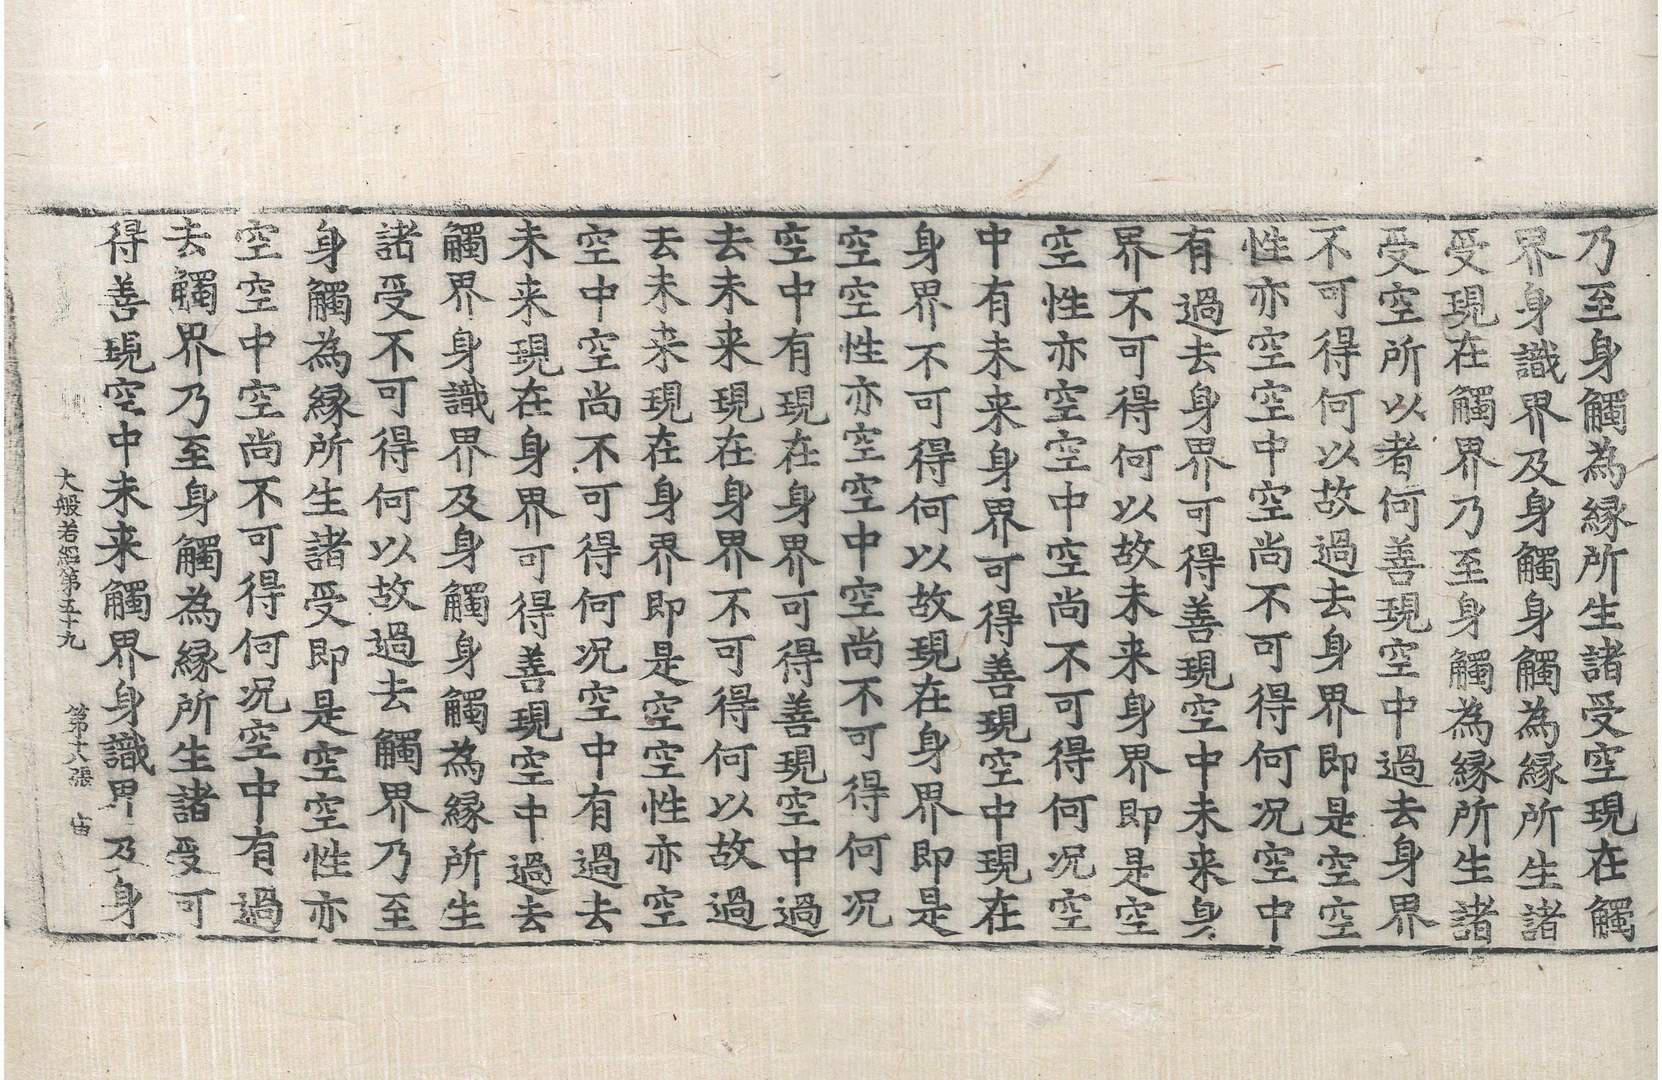 乃至身觸為縁所生諸受空現在觸
界身識界及身觸身觸為縁所生諸
受現在觸界乃至身觸為縁所生諸
受空所以者何善現空中過去身界
不可得何以故過去身界即是空空
性亦空空中空尚不可得何况空中
有過去身界可得善現空中未来身
界不可得何以故未来身界即是空
空性亦空空中空尚不可得何况空
中有未来身界可得善現空中現在
身界不可得何以故現在身界即是
空空性亦空空中空尚不可得何况
空中有現在身界可得善現空中過
去未来現在身界不可得何以故過
去未来現在身界即是空空性亦空
空中空尚不可得何况空中有過去
未来現在身界可得善現空中過去
觸界身識界及身觸身觸為縁所生
諸受不可得何以故過去觸界乃至
身觸為縁所生諸受即是空空性亦
空空中空尚不可得何况空中有過
去觸界乃至身觸為縁所生諸受可
得善現空中未来觸界身識界乃身
大般若經第五十九 第 張 宙